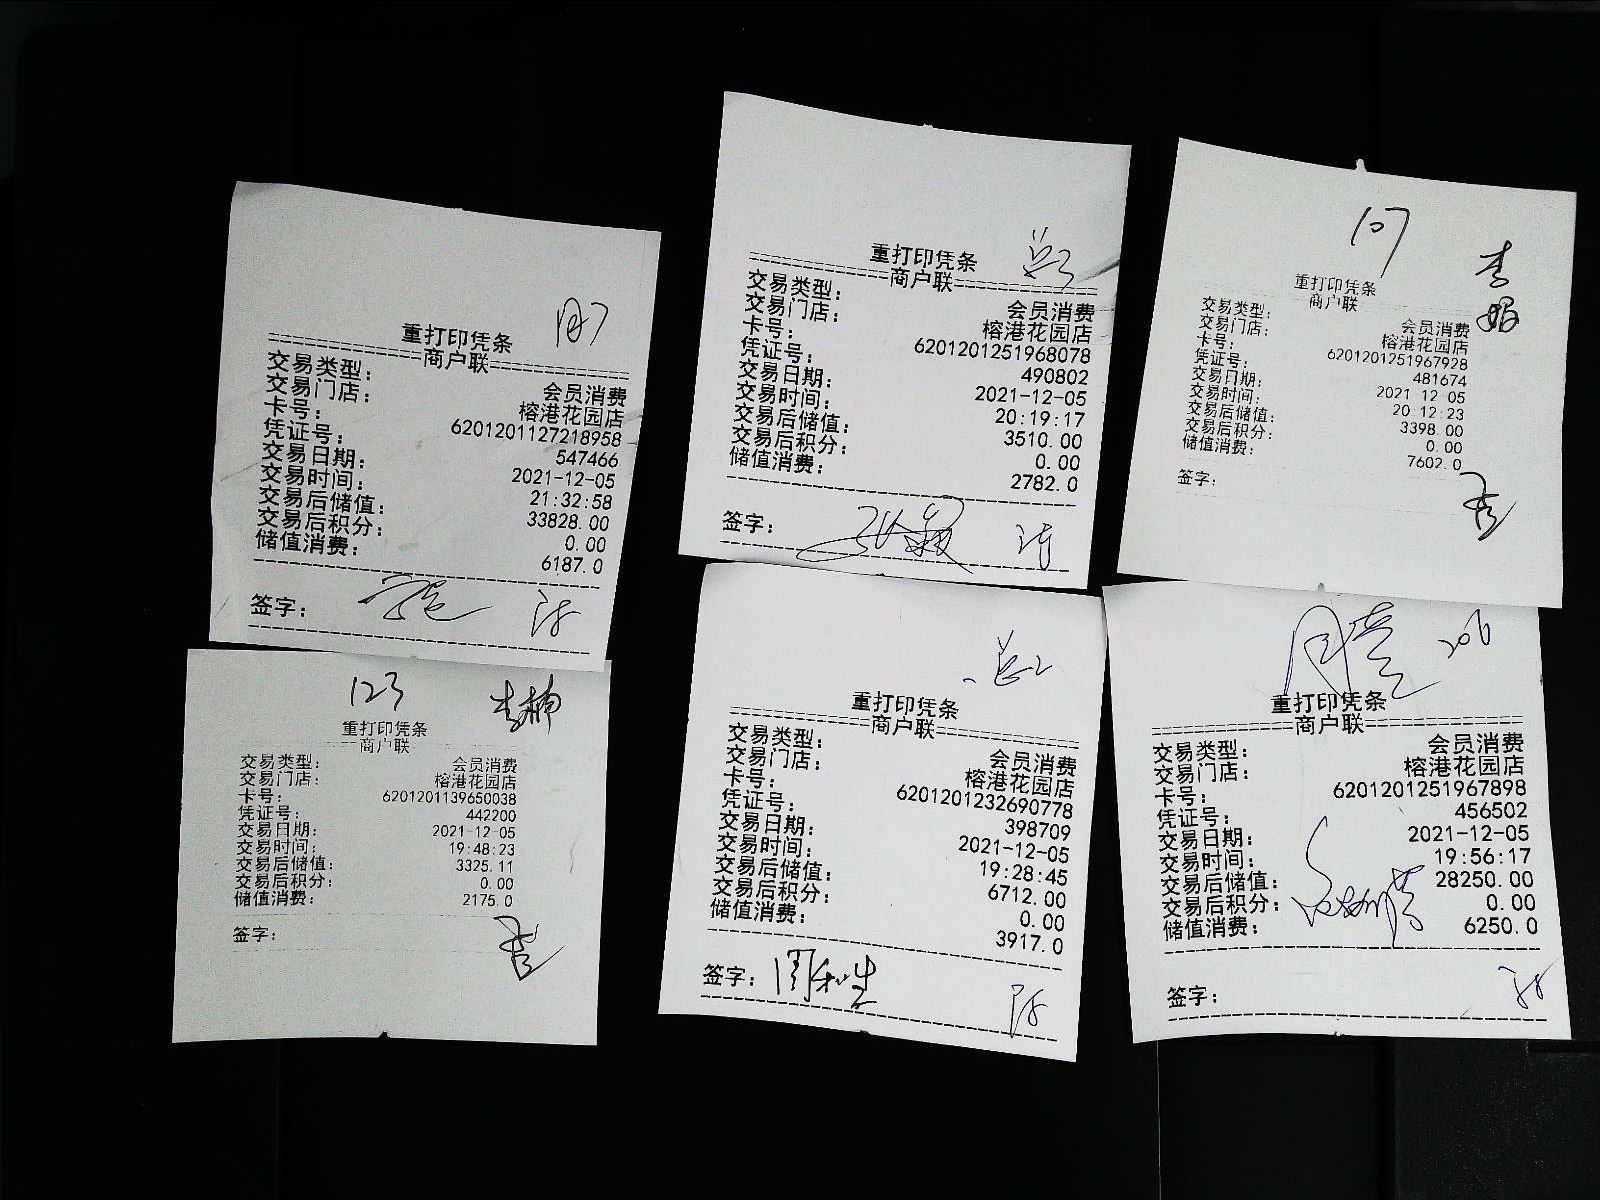 重打印凭条
商户联
交易类型: 会员消费
交易门店: 榕港花园店
卡号: 6201201127218958
凭证号: 547466
交易日期: 2021-12-05
交易时间: 21:32:58
交易后储值: 33828.00
交易后积分: 0.00
储值消费: 6187.0
签字:
重打印凭条
商户联
交易类型: 会员消费
交易门店: 榕港花园店
卡号: 6201201251968078
凭证号: 490802
交易日期: 2021-12-05
交易时间: 20:19:17
交易后储值: 3510.00
交易后积分: 0.00
储值消费: 2782.0
签字:
107
重打印凭条
商户联
交易类型: 会员消费
交易门店: 榕港花园店
卡号: 6201201251967928
凭证号: 481674
交易日期: 2021-12-05
交易时间: 20:12:23
交易后储值: 3398.00
交易后积分: 0.00
储值消费: 7602.0
签字:
123 李楠
重打印凭条
商户联
交易类型: 会员消费
交易门店: 榕港花园店
卡号: 6201201139650038
凭证号: 442200
交易日期: 2021-12-05
交易时间: 19:48:23
交易后储值: 3325.11
交易后积分: 0.00
储值消费: 2175.0
签字:
重打印凭条
商户联
交易类型: 会员消费
交易门店: 榕港花园店
卡号: 6201201232690778
凭证号: 398709
交易日期: 2021-12-05
交易时间: 19:28:45
交易后储值: 6712.00
交易后积分: 0.00
储值消费: 3917.0
签字:
206
重打印凭条
商户联
交易类型: 会员消费
交易门店: 榕港花园店
卡号: 6201201251967898
凭证号: 456502
交易日期: 2021-12-05
交易时间: 19:56:17
交易后储值: 28250.00
交易后积分: 0.00
储值消费: 6250.0
签字: